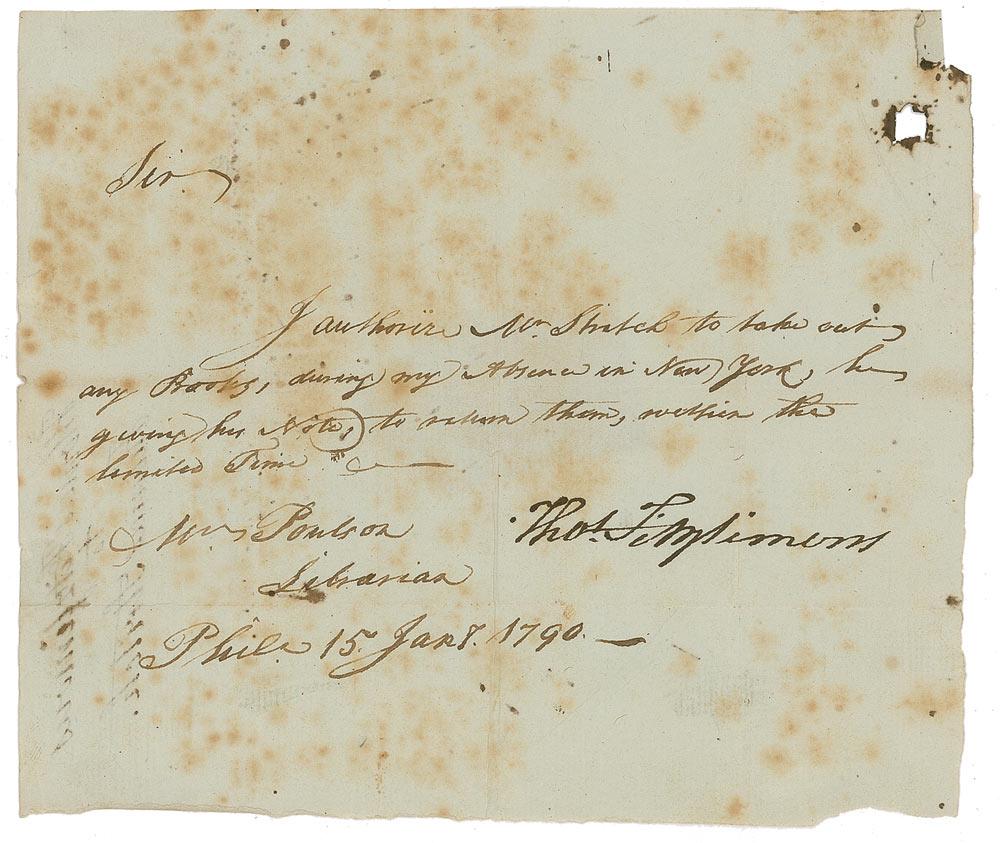 Sir
I authorize Mr. Stretch to take out
any Books, during my Absence in New York, he
giving his Note, to return them, within the
limited Time
Mr Poulson
Thos. Fitzsimons
Librarian
Phila. 15. Jany. 1790.